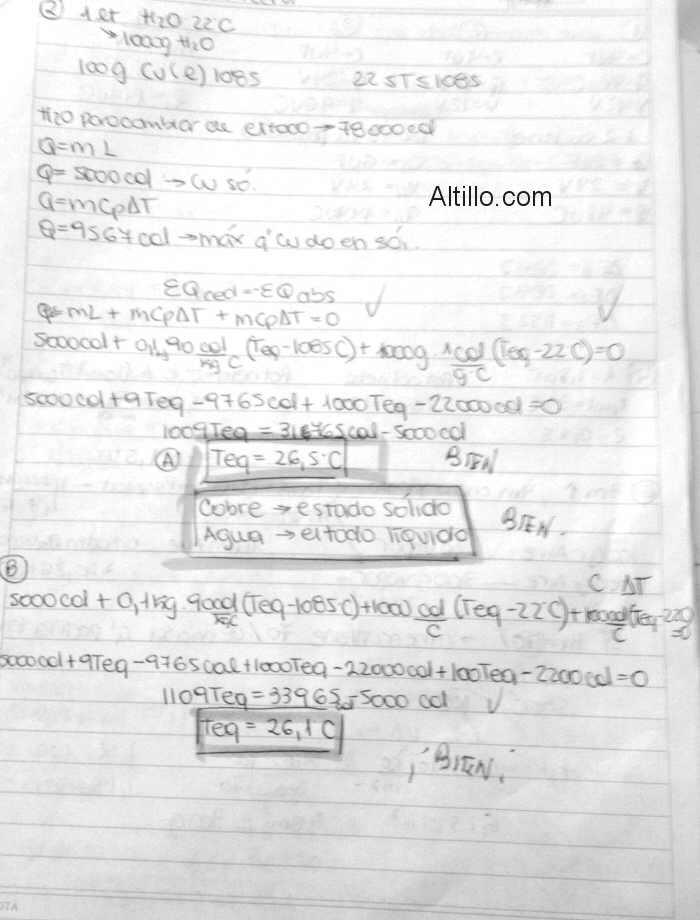 ② 1 Lt H2O 22°C
→ 1000g H2O
100g Cu(l) 1085 22 ≤ T ≤ 1085
H2O para cambiar de estado → 78000 cal
Q=mL
Q= 5000 cal → Cu só.
Q=mCpΔT
Q=9567 cal → máx q' Cu da en só.
Altillo.com
ΣQced=-ΣQabs ✓
Q=mL + mCpΔT + mCpΔT=0 ✓
5000cal + 0,1 90 cal/kg°C (Teq-1085°C) + 1000g. 1cal/g°C (Teq-22°C)=0
5000cal+9Teq-9765cal+1000Teq-22000cal=0
1009Teq = 31765cal-5000cal
Ⓐ Teq = 26,5°C BIEN
Cobre → estado sólido
Agua → estado líquido BIEN.
Ⓑ C ΔT
5000cal + 0,1kg. 90cal/kg°C (Teq-1085°C)+1000 cal/°C (Teq-22°C)+100cal/°C (Teq-22°C)=0
5000cal+9Teq-9765cal+1000Teq-22000cal+100Teq-2200cal=0
1109Teq=33965cal-5000 cal ✓
Teq = 26,1°C
¡BIEN!